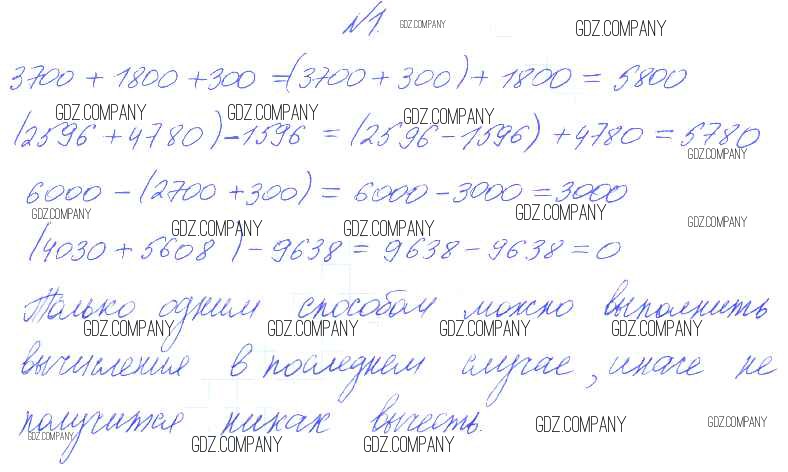 №1.
GDZ.COMPANY GDZ.COMPANY
3700 + 1800 + 300 = (3700 + 300) + 1800 = 5800
GDZ.COMPANY GDZ.COMPANY GDZ.COMPANY
(2596 + 4780) - 1596 = (2596 - 1596) + 4780 = 5780
GDZ.COMPANY
6000 - (2700 + 300) = 6000 - 3000 = 3000
GDZ.COMPANY GDZ.COMPANY GDZ.COMPANY GDZ.COMPANY GDZ.COMPANY
(4030 + 5608) - 9638 = 9638 - 9638 = 0
Только одним способом можно выполнить
GDZ.COMPANY GDZ.COMPANY GDZ.COMPANY GDZ.COMPANY
вычисления в последнем случае, иначе не
получится никак вычесть.
GDZ.COMPANY GDZ.COMPANY GDZ.COMPANY GDZ.COMPANY GDZ.COMPANY